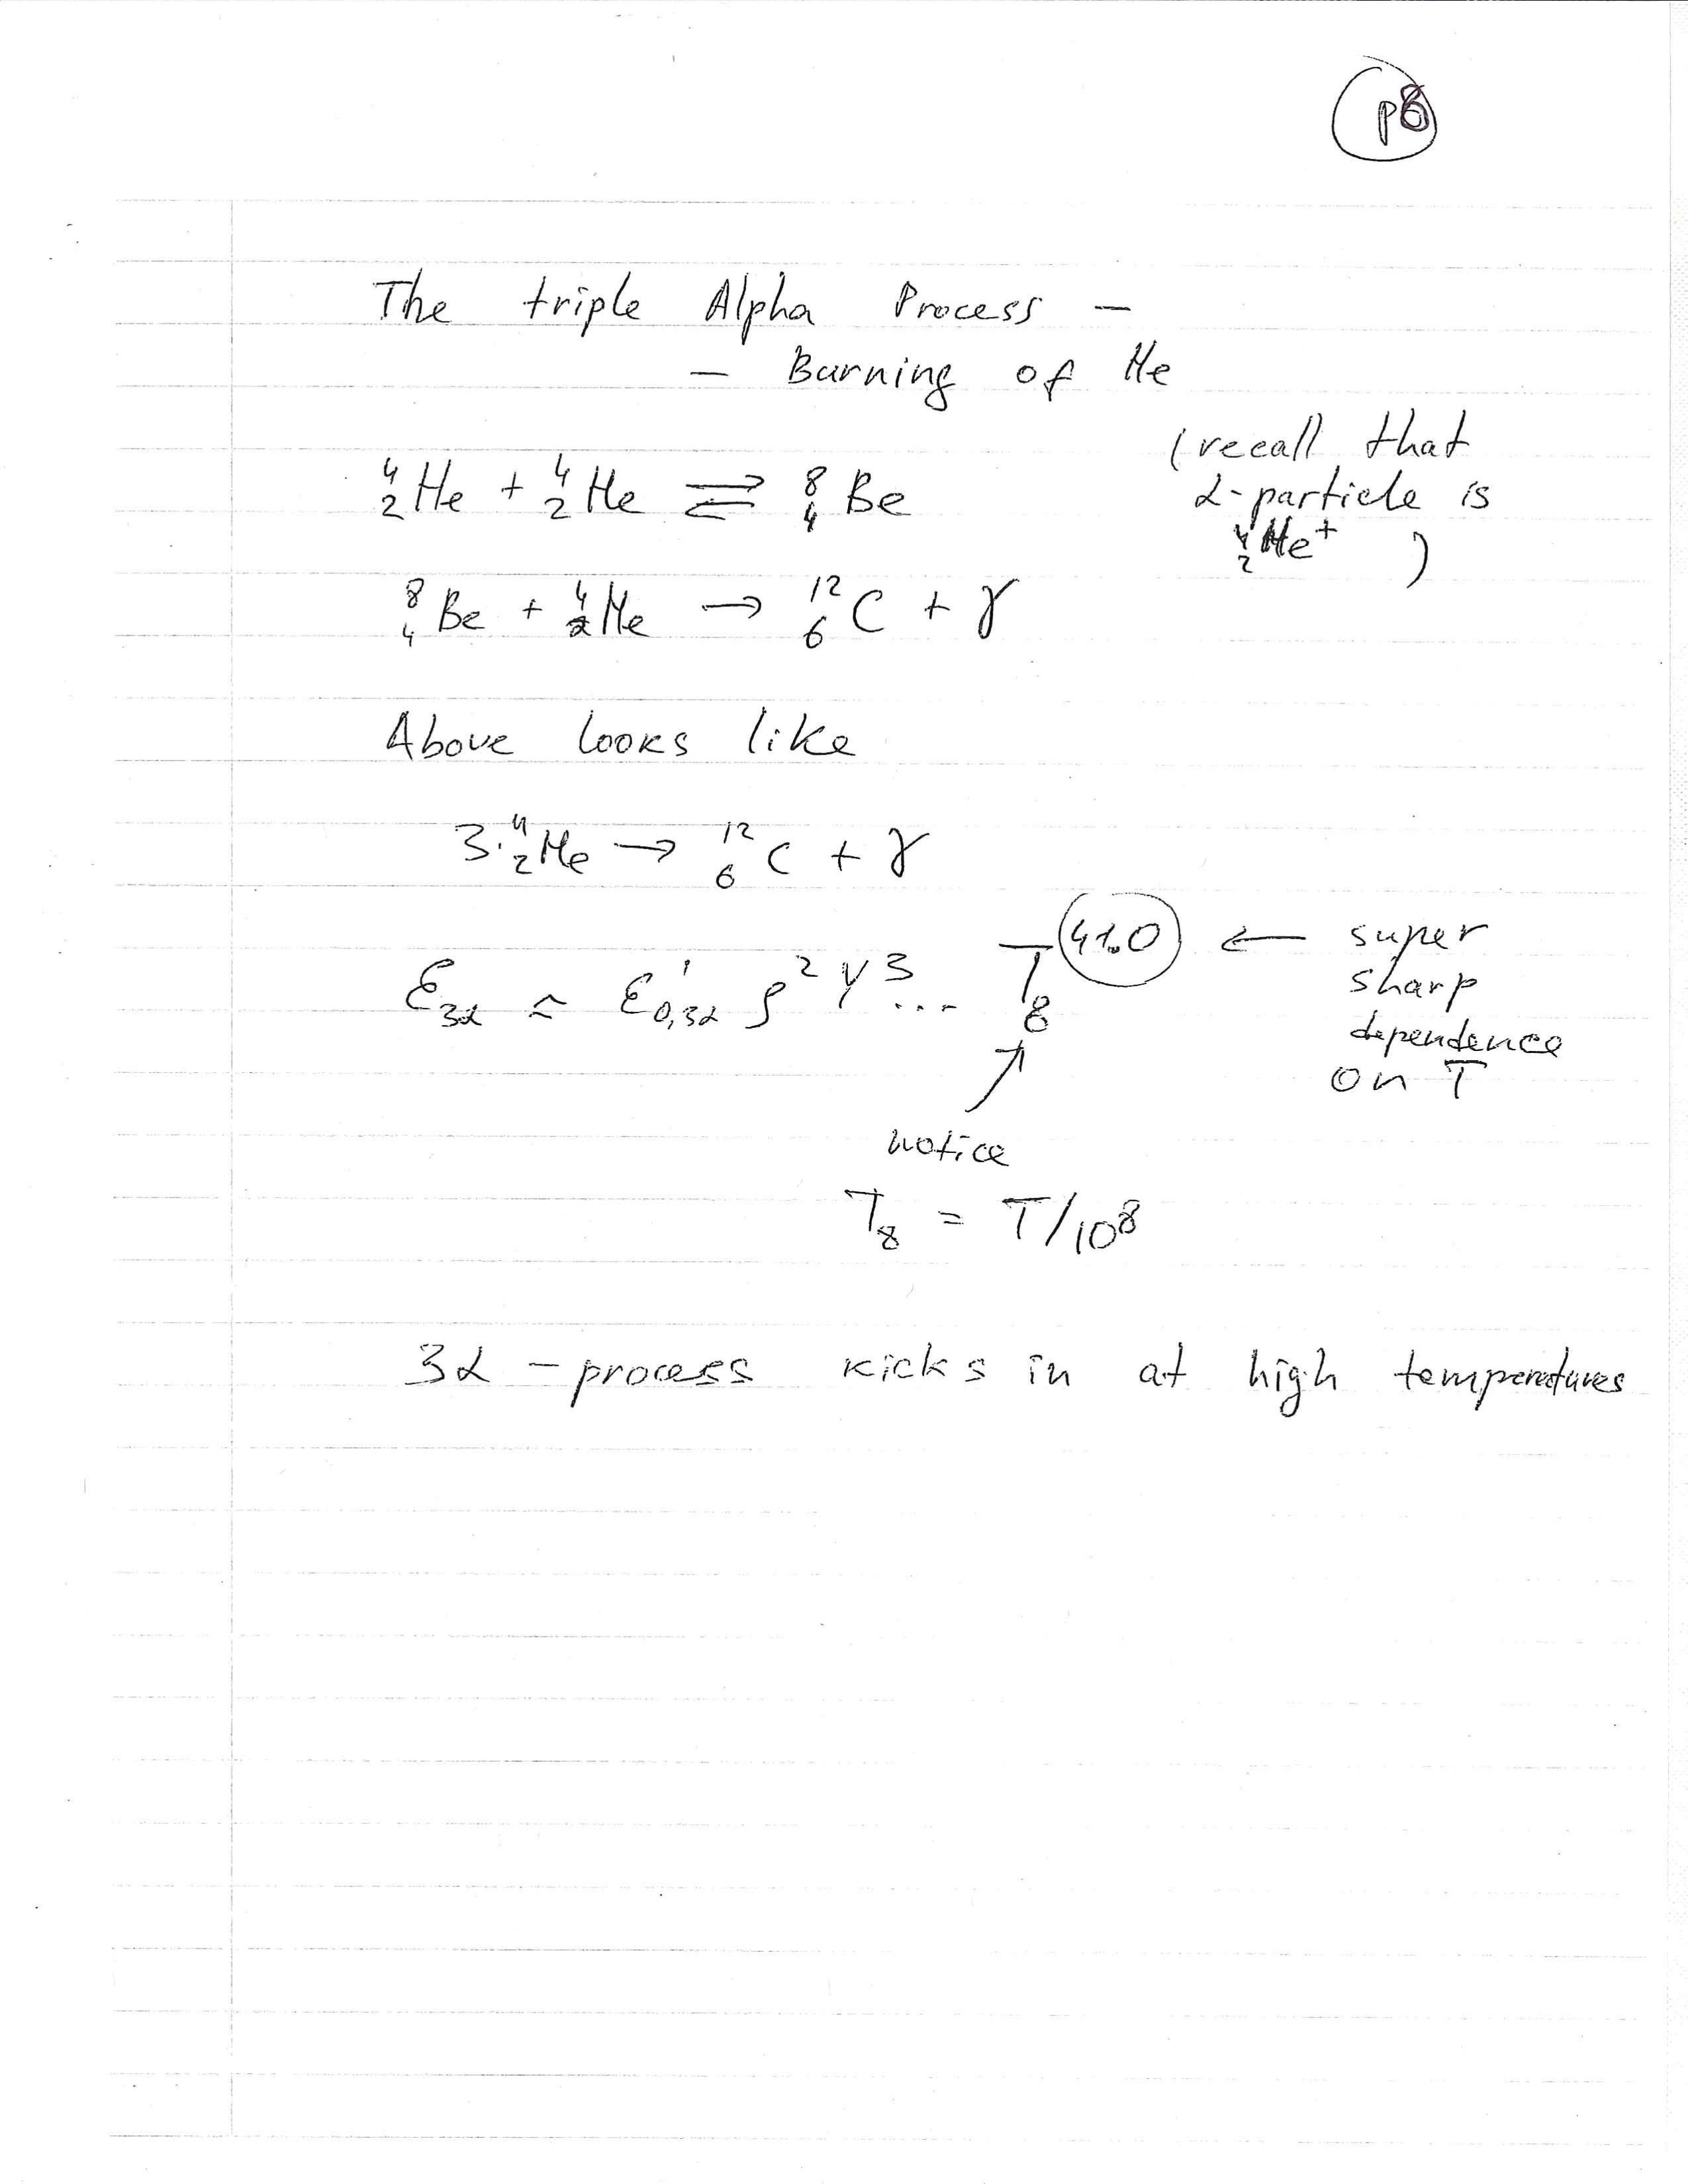 p8
The triple Alpha Process —
— Burning of He
(recall that
α-particle is
⁴₂He⁺ )
⁴₂He + ⁴₂He ⇌ ⁸₄Be
⁸₄Be + ⁴₂He → ¹²₆C + γ
Above looks like
3·⁴₂He → ¹²₆C + γ
ε₃α ≃ ε'₀,₃α ρ² Y³ ... T₈^41.0 ← super
sharp
dependence
on T
notice
T₈ = T/10⁸
3α – process kicks in at high temperatures